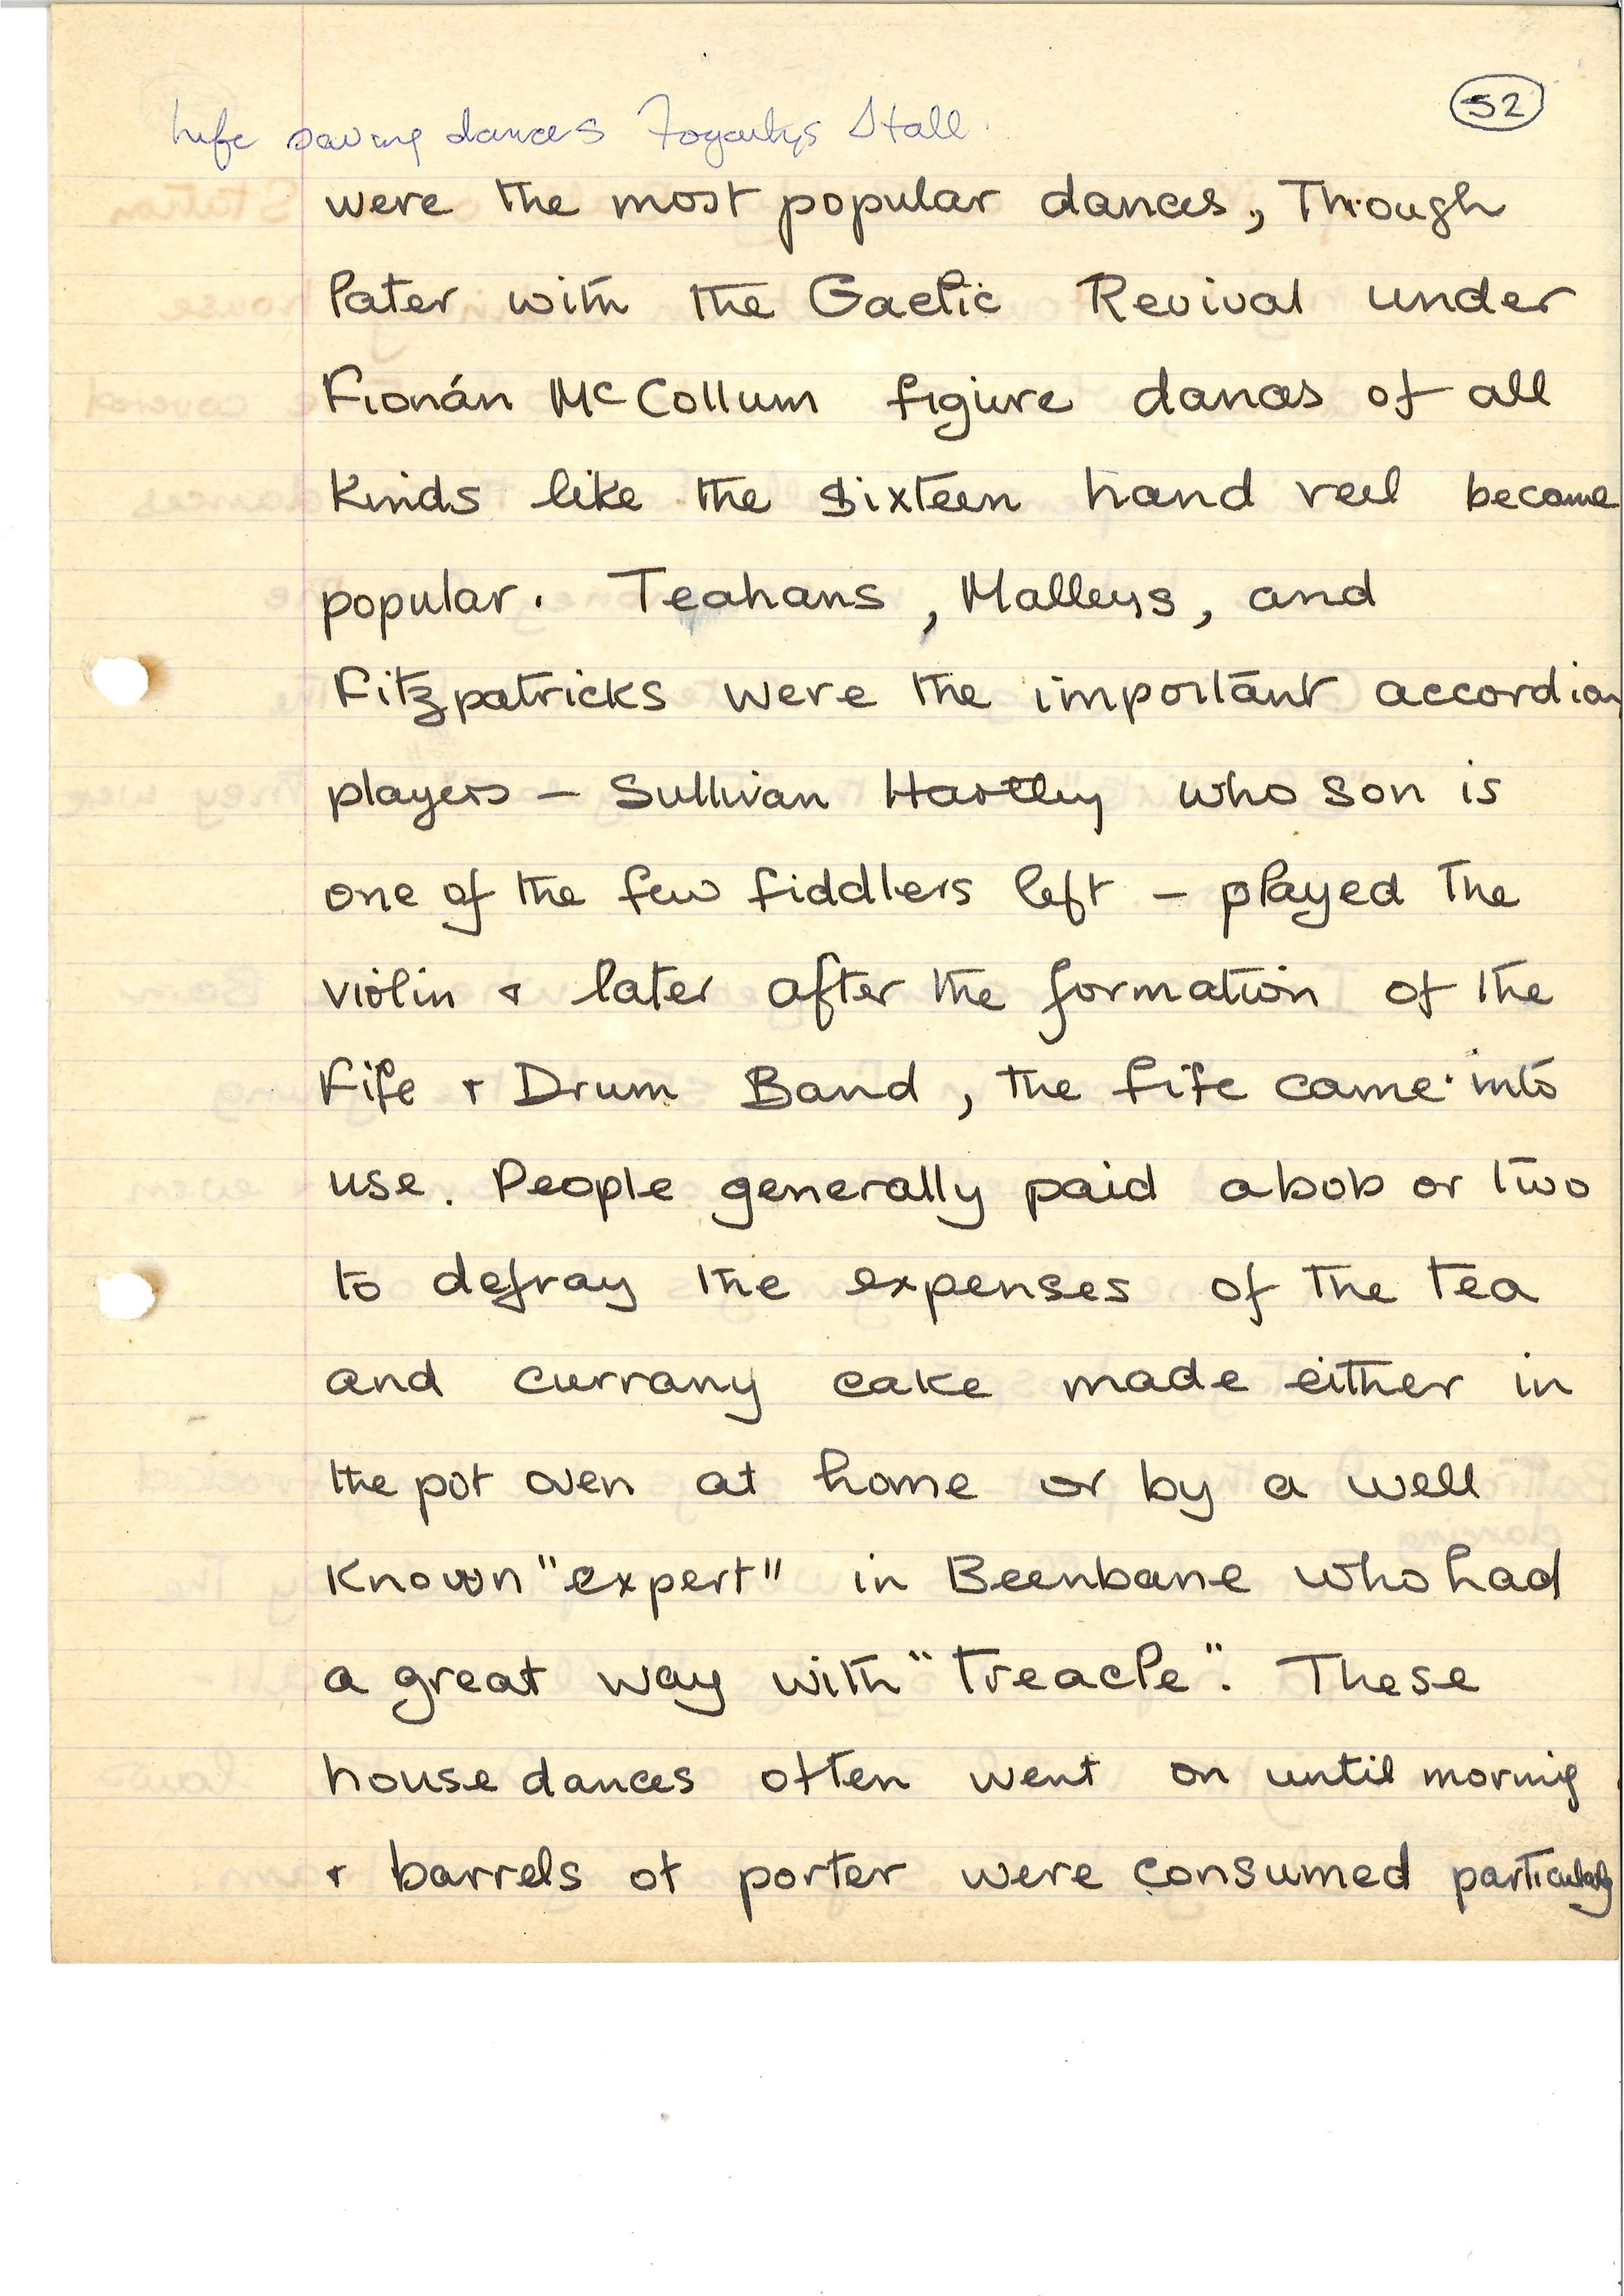 52
Life saving dances Fogartys Stall.
were the most popular dances, Though
later with the Gaelic Revival under
Fionán McCollum figure dances of all
Kinds like the sixteen hand reel become
popular. Teahans, Malleys, and
Fitzpatricks were the important accordian
players – Sullivan Hartley who son is
one of the few fiddlers left – played the
violin & later after the formation of the
Fife & Drum Band, the fife came into
use. People generally paid a bob or two
to defray the expenses of the tea
and currany cake made either in
the pot oven at home or by a well
Known "expert" in Beenbane who had
a great way with "treacle". These
house dances often went on until morning
& barrels of porter were consumed particularly